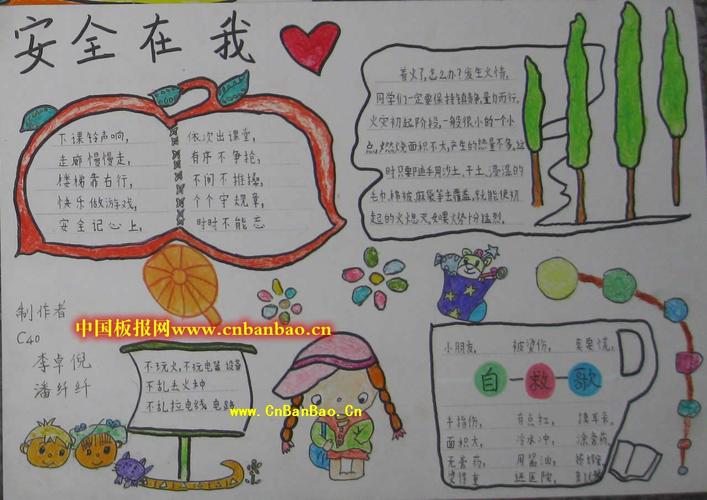 安全在我
下课铃声响，
走廊慢慢走，
楼梯靠右行，
快乐做游戏，
安全记心上，
依次出课堂，
有序不争抢，
不闹不推搡，
个个守规章，
时时不能忘
着火了，怎么办？发生火情，
同学们一定要保持镇静，量力而行。
火灾初起阶段，一般很小的一个小
点，燃烧面积不大，产生的热量不多，这
时只要随手用沙土、干土、浸湿的
毛巾，棉被，麻袋等去覆盖，就能使初
起的火熄灭，如果火势十分猛烈，
制作者
C40
李卓倪
潘纤纤
中国板报网www.cnbanbao.cn
不玩火，不玩电器设备
不乱丢火种
不乱拉电线 电路
www.CnBanBao.Cn
小朋友， 被烫伤， 莫要慌，
自一救歌
手指伤， 有点红， 
面积大， 冷水冲， 涂膏药，
无膏药， 用酱油，
烫得重 送医院，